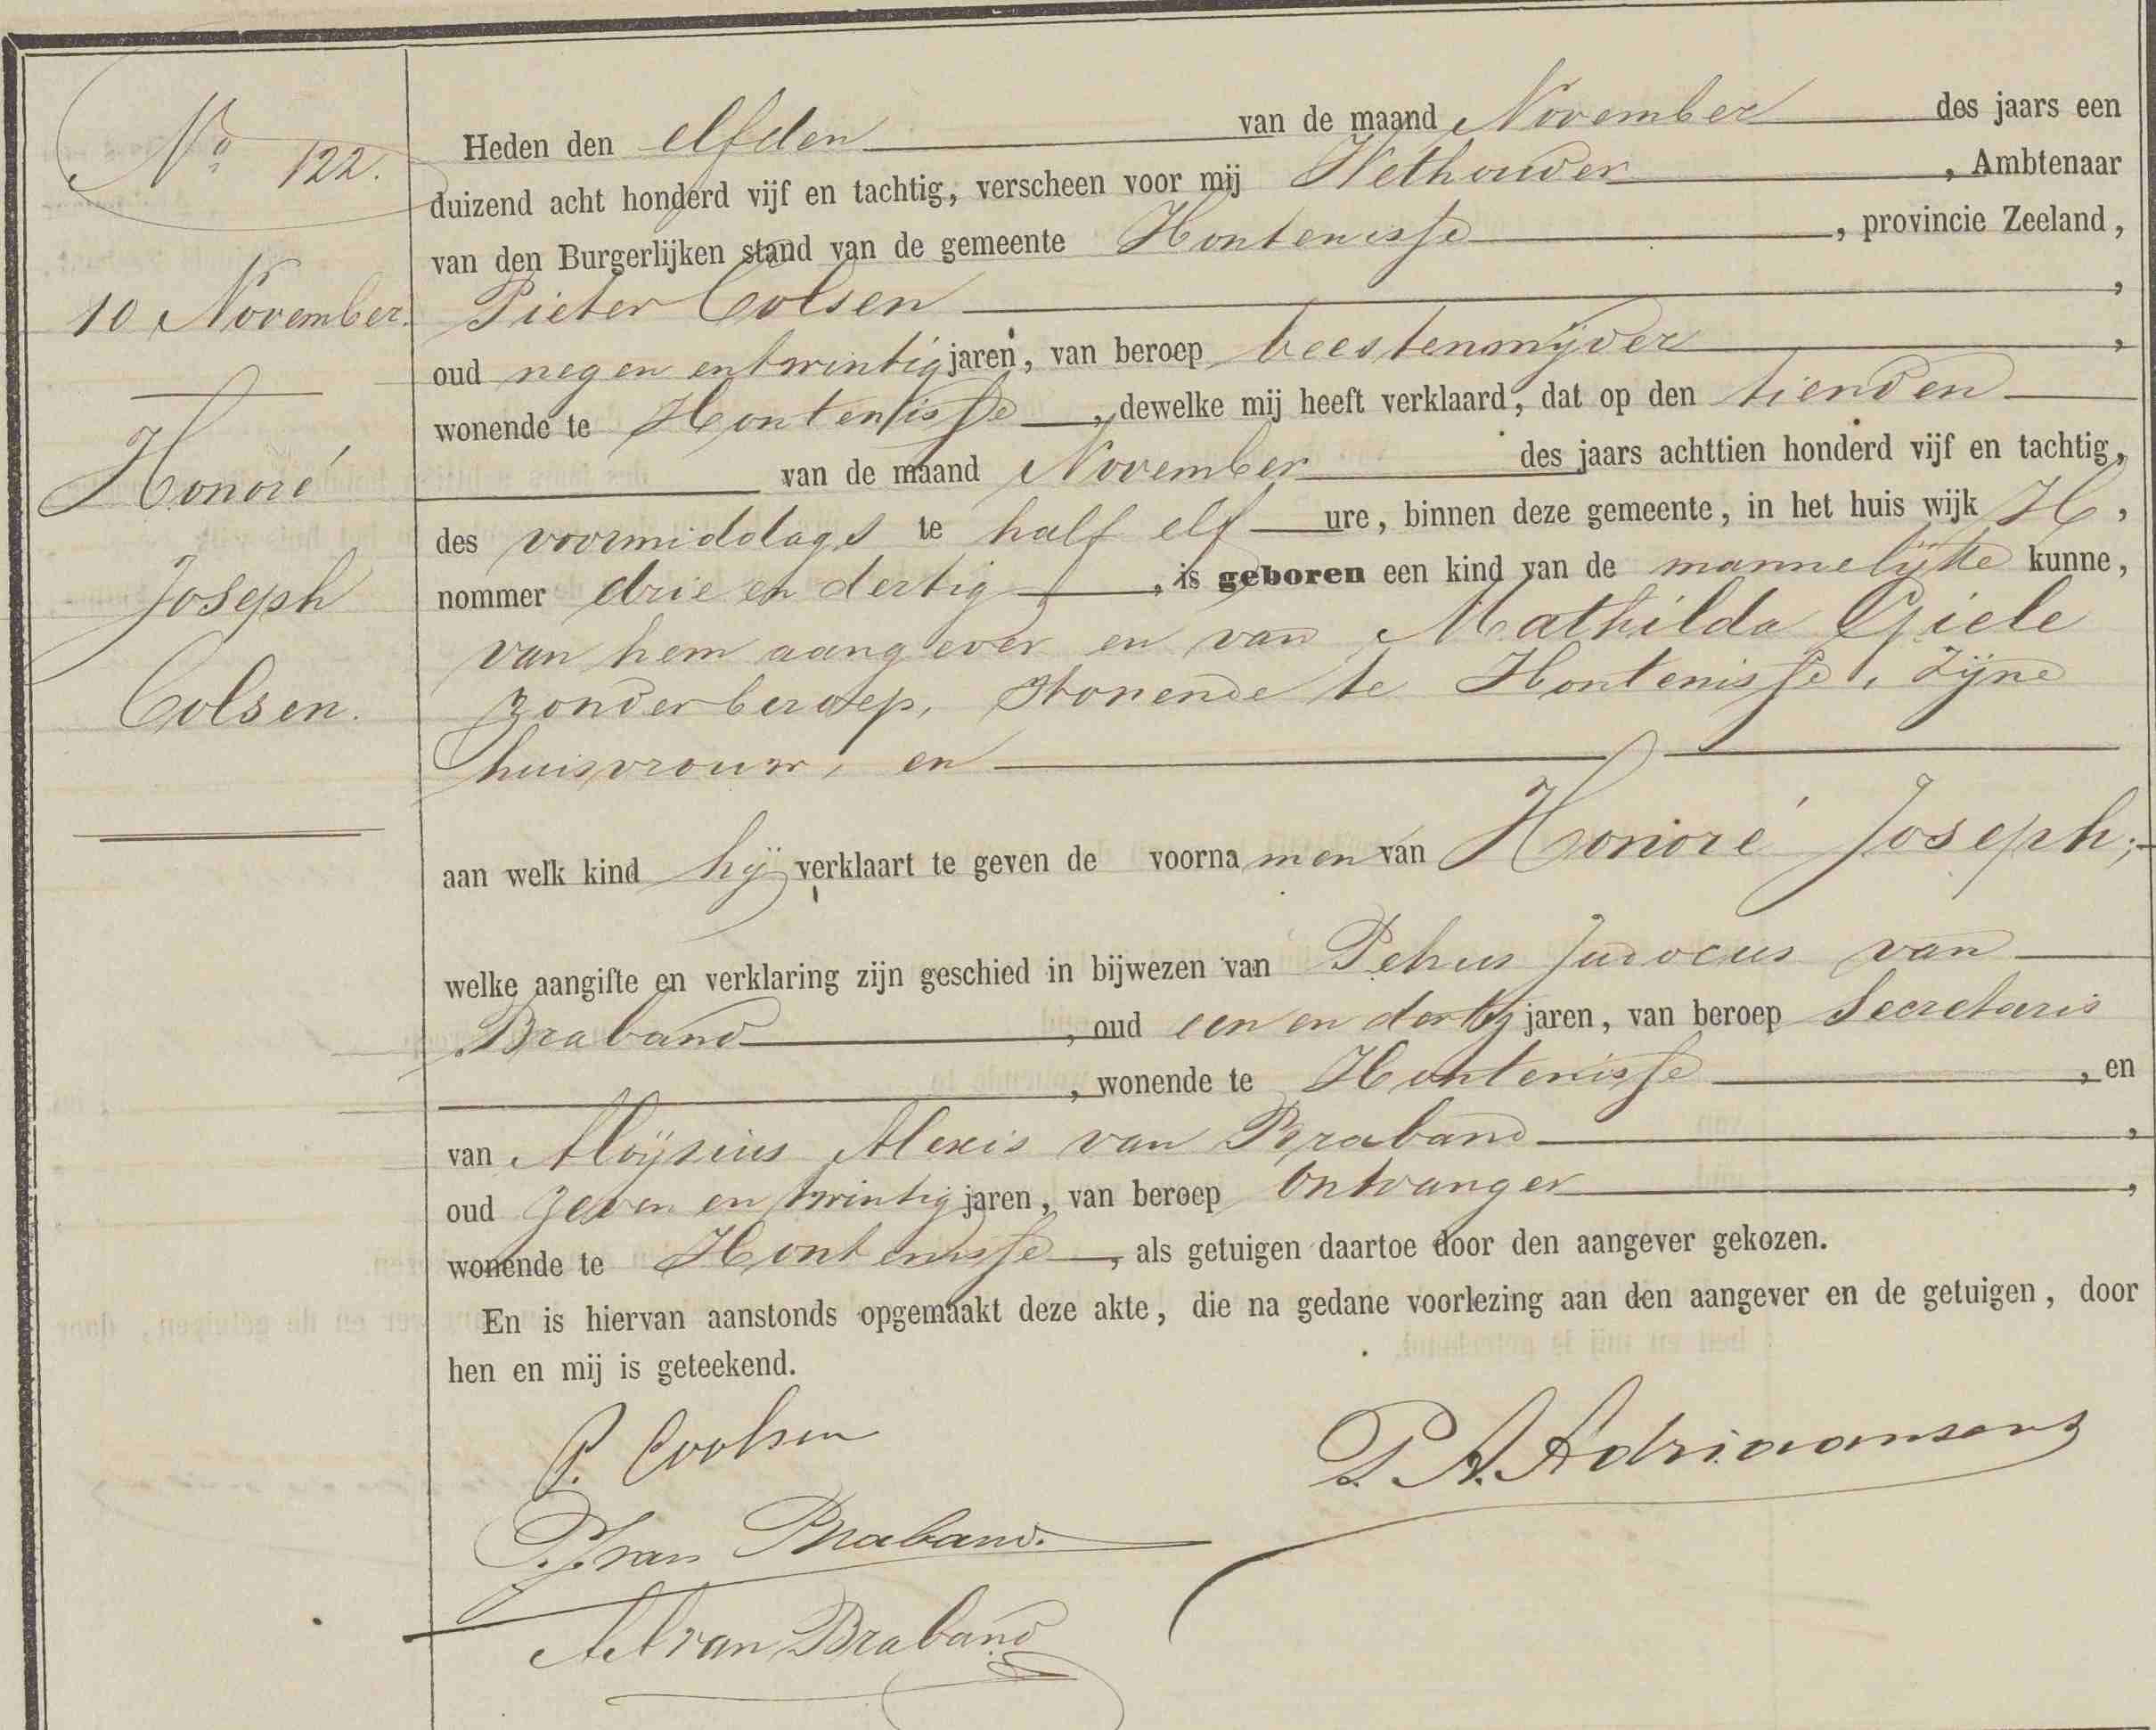 No 122.
10 November.
Honoré
Joseph
Colsen.
Heden den elfden van de maand November des jaars een
duizend acht honderd vijf en tachtig, verscheen voor mij Wethouder, Ambtenaar
van den Burgerlijken stand van de gemeente Hontenisse, provincie Zeeland,
Pieter Colsen,
oud negen en twintig jaren, van beroep beestensnijder,
wonende te Hontenisse, dewelke mij heeft verklaard, dat op den tienden
van de maand November des jaars achttien honderd vijf en tachtig,
des voormiddags te half elf ure, binnen deze gemeente, in het huis wijk H,
nommer drie en dertig, is geboren een kind van de mannelijke kunne,
van hem aangever en van Mathilda Giele
zonder beroep, wonende te Hontenisse, zijne
huisvrouw, en
aan welk kind hij verklaart te geven de voornamen van Honoré Joseph;
welke aangifte en verklaring zijn geschied in bijwezen van Petrus Judocus van
Braband, oud een en dertig jaren, van beroep Secretaris
, wonende te Hontenisse, en
van Aloÿsius Alexis van Braband,
oud zeven en twintig jaren, van beroep Ontvanger,
wonende te Hontenisse, als getuigen daartoe door den aangever gekozen.
En is hiervan aanstonds opgemaakt deze akte, die na gedane voorlezing aan den aangever en de getuigen, door
hen en mij is geteekend.
P. Coolsen
P. A. Adriaansens
P. J. van Braband.
A A van Braband